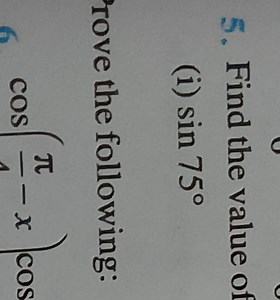 5. Find the value of
(i) sin 75°
rove the following:
6. cos(π/4 − x) cos